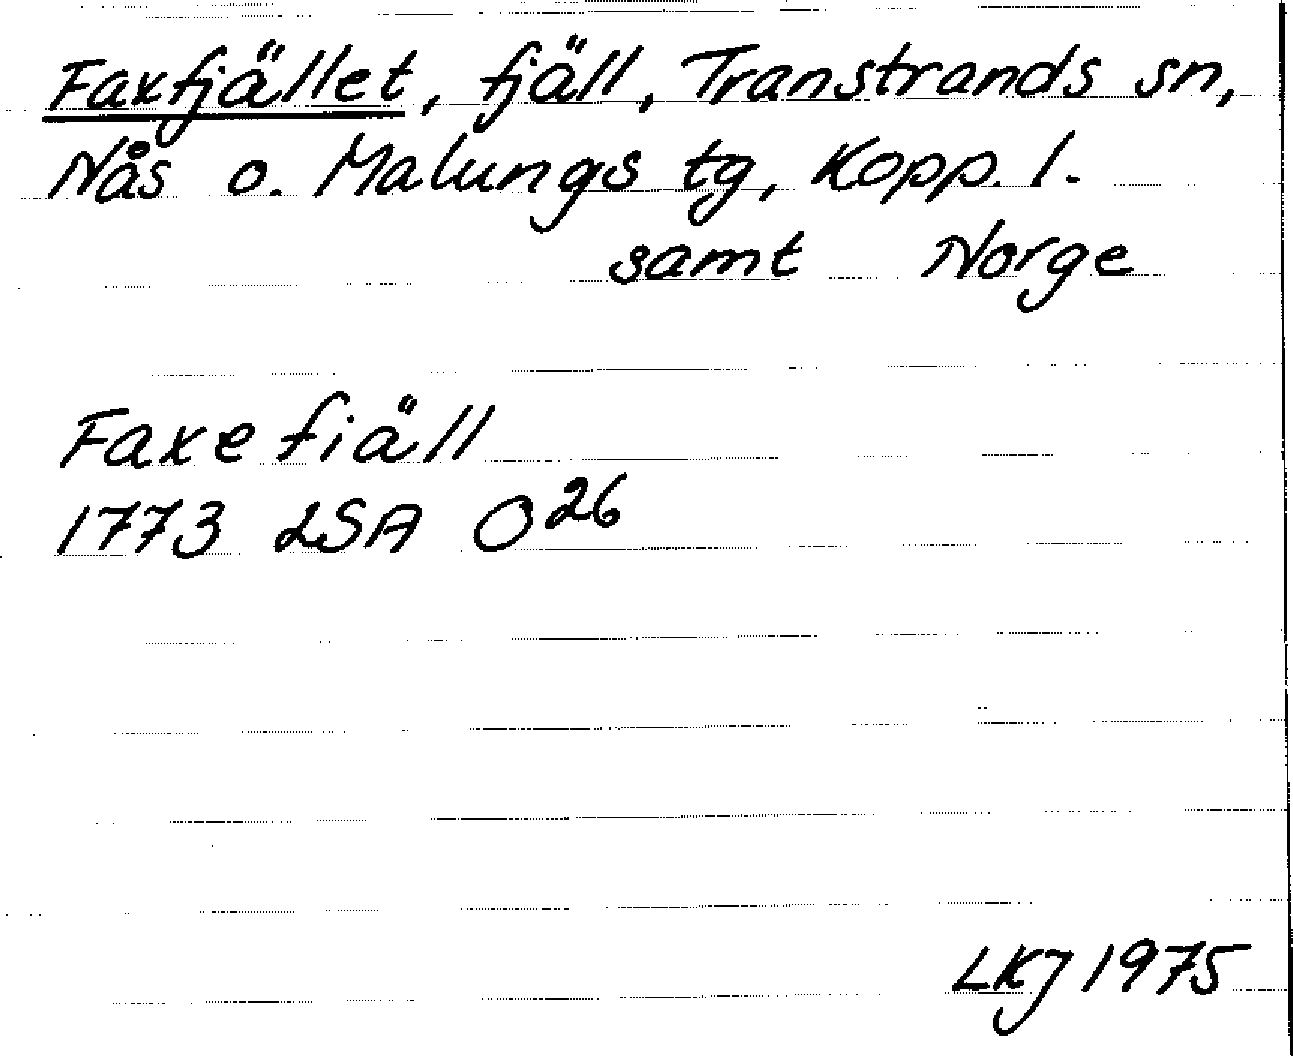 Faxfjället, fjäll, Transtrands sn,
Nås o. Malungs tg, Kopp. l.
samt Norge
Faxefiäll
1773 LSA O26
LKJ 1975